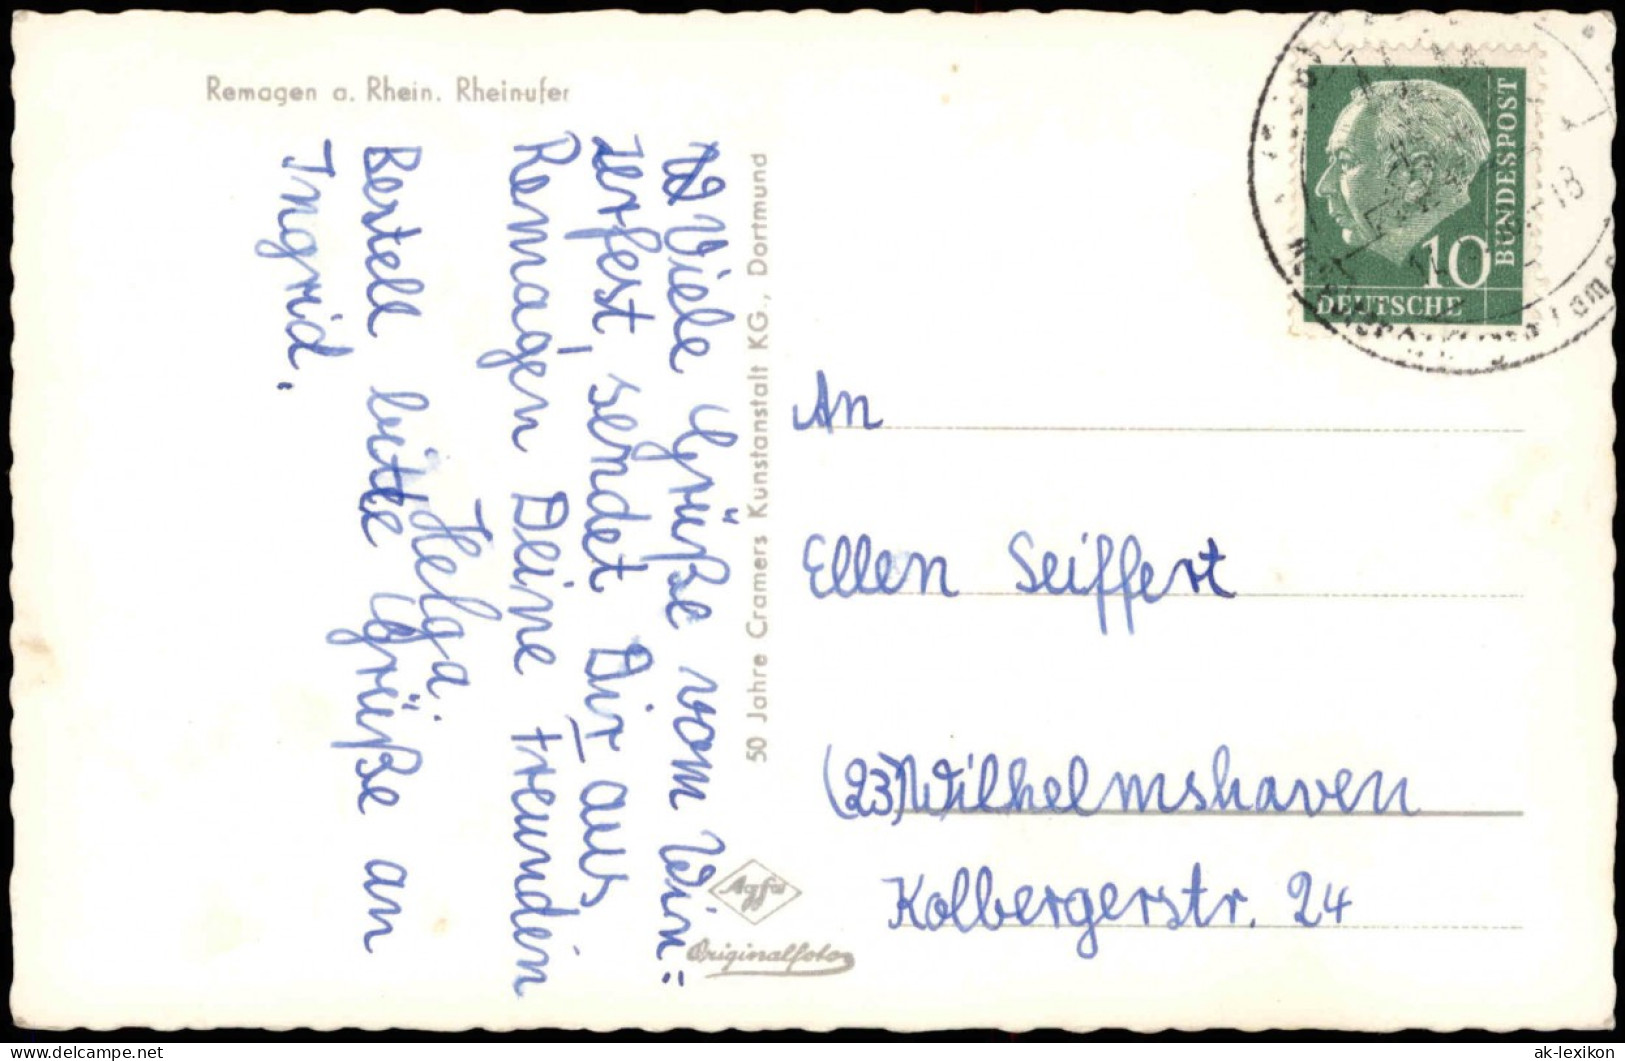 Remagen a. Rhein. Rheinufer
Viele Grüße vom Win=
zerfest, sendet Dir aus
Remagen Deine Freundin
Helga.
Bestell bitte Grüße an
Ingrid.
50 Jahre Cramers Kunstanstalt KG., Dortmund
Agfa
Originalfoto
DEUTSCHE
BUNDESPOST
10
18
An
Ellen Seiffert
(23) Wilhelmshaven
Kolbergerstr. 24
ak-lexikon